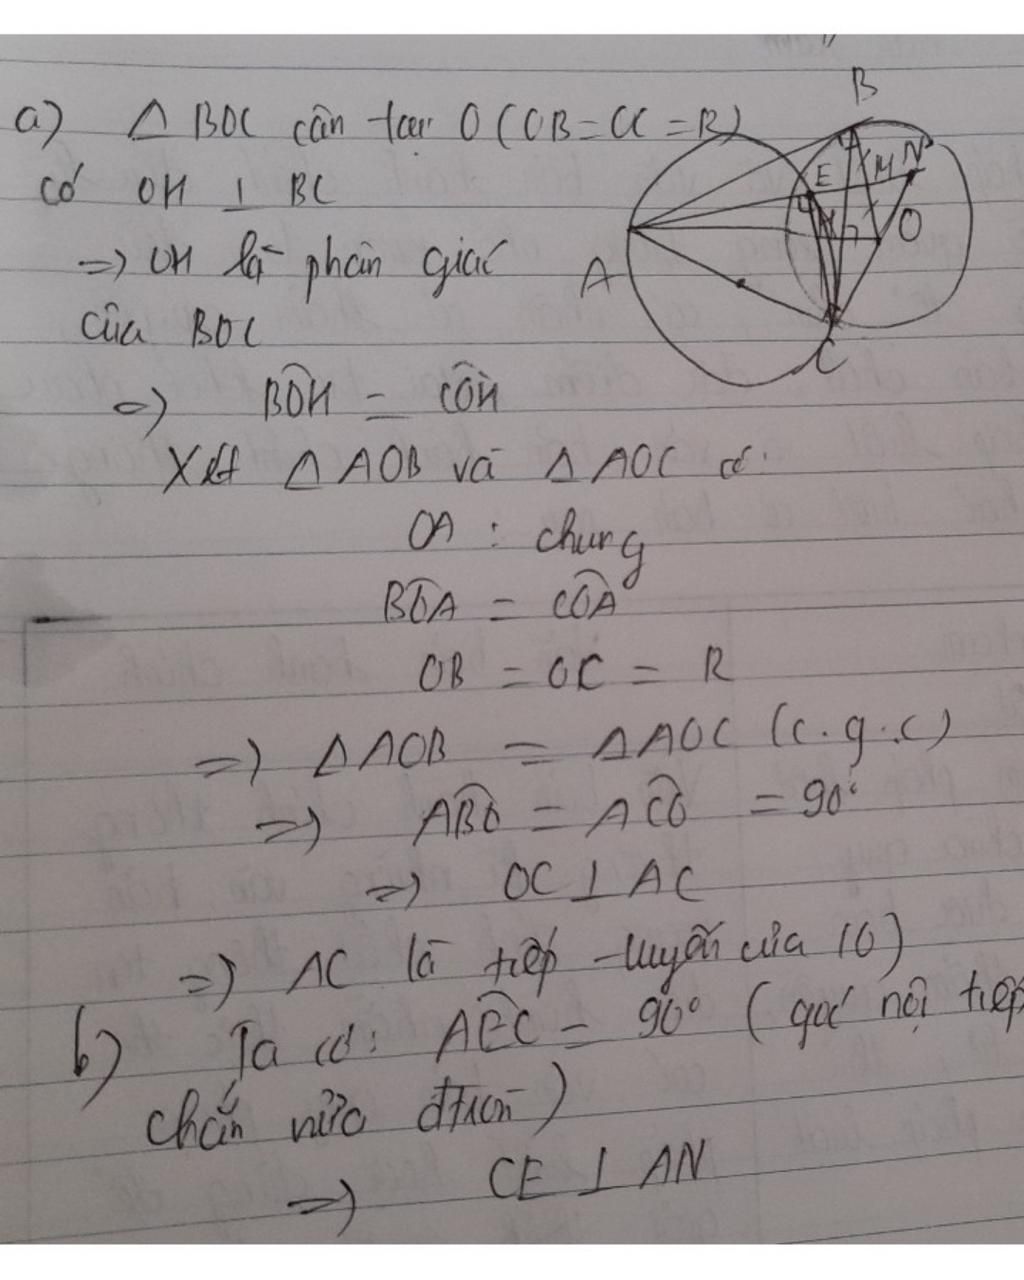 a) △ BOC cân tại O (OB = OC = R)
có OH ⊥ BC
=> OH là phân giác
của BOC
=> BÔH = CÔH
Xét △ AOB và △ AOC có:
OA : chung
BÔA = CÔA
OB = OC = R
=> △AOB = △AOC (c.g.c)
=> ABO = ACO = 90°
=> OC ⊥ AC
=> AC là tiếp tuyến của (O)
b) Ta có: AEC = 90° (góc nội tiếp
chắn nửa đtròn)
=> CE ⊥ AN
B
E M N
H O
A
C